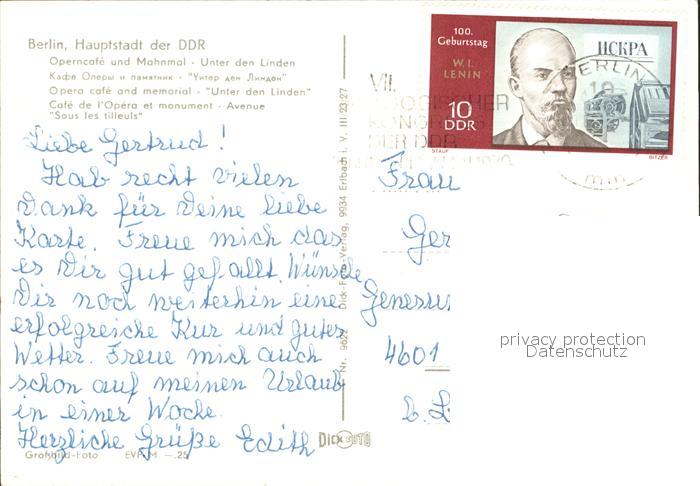 Berlin, Hauptstadt der DDR
Operncafé und Mahnmal - Unter den Linden
Кафе Оперы и памятник - "Унтер ден Линден"
Opera café and memorial - "Unter den Linden"
Café de l'Opéra et monument - Avenue
"Sous les tilleuls"
100.
Geburtstag
W. I.
LENIN
10
DDR
ИСКРА
STAUF
BITZER
BERLIN
VII.
KONGRESS
DER DDR
Liebe Gertrud!
Hab recht vielen
Dank für Deine liebe
Karte. Freue mich das
es Dir gut gefällt. Wünsche
Dir noch weiterhin eine
erfolgreiche Kur und gutes
Wetter. Freue mich auch
schon auf meinen Urlaub
in einer Woche.
Herzliche Grüße Edith
Großbild-Foto EVP M -.25
Nr. 9622 Dick-Foto-Verlag, 9934 Erlbach i. V. III/23/27
DICK FOTO
Frau
Ger
Genesun
4601
b. L
privacy protection
Datenschutz